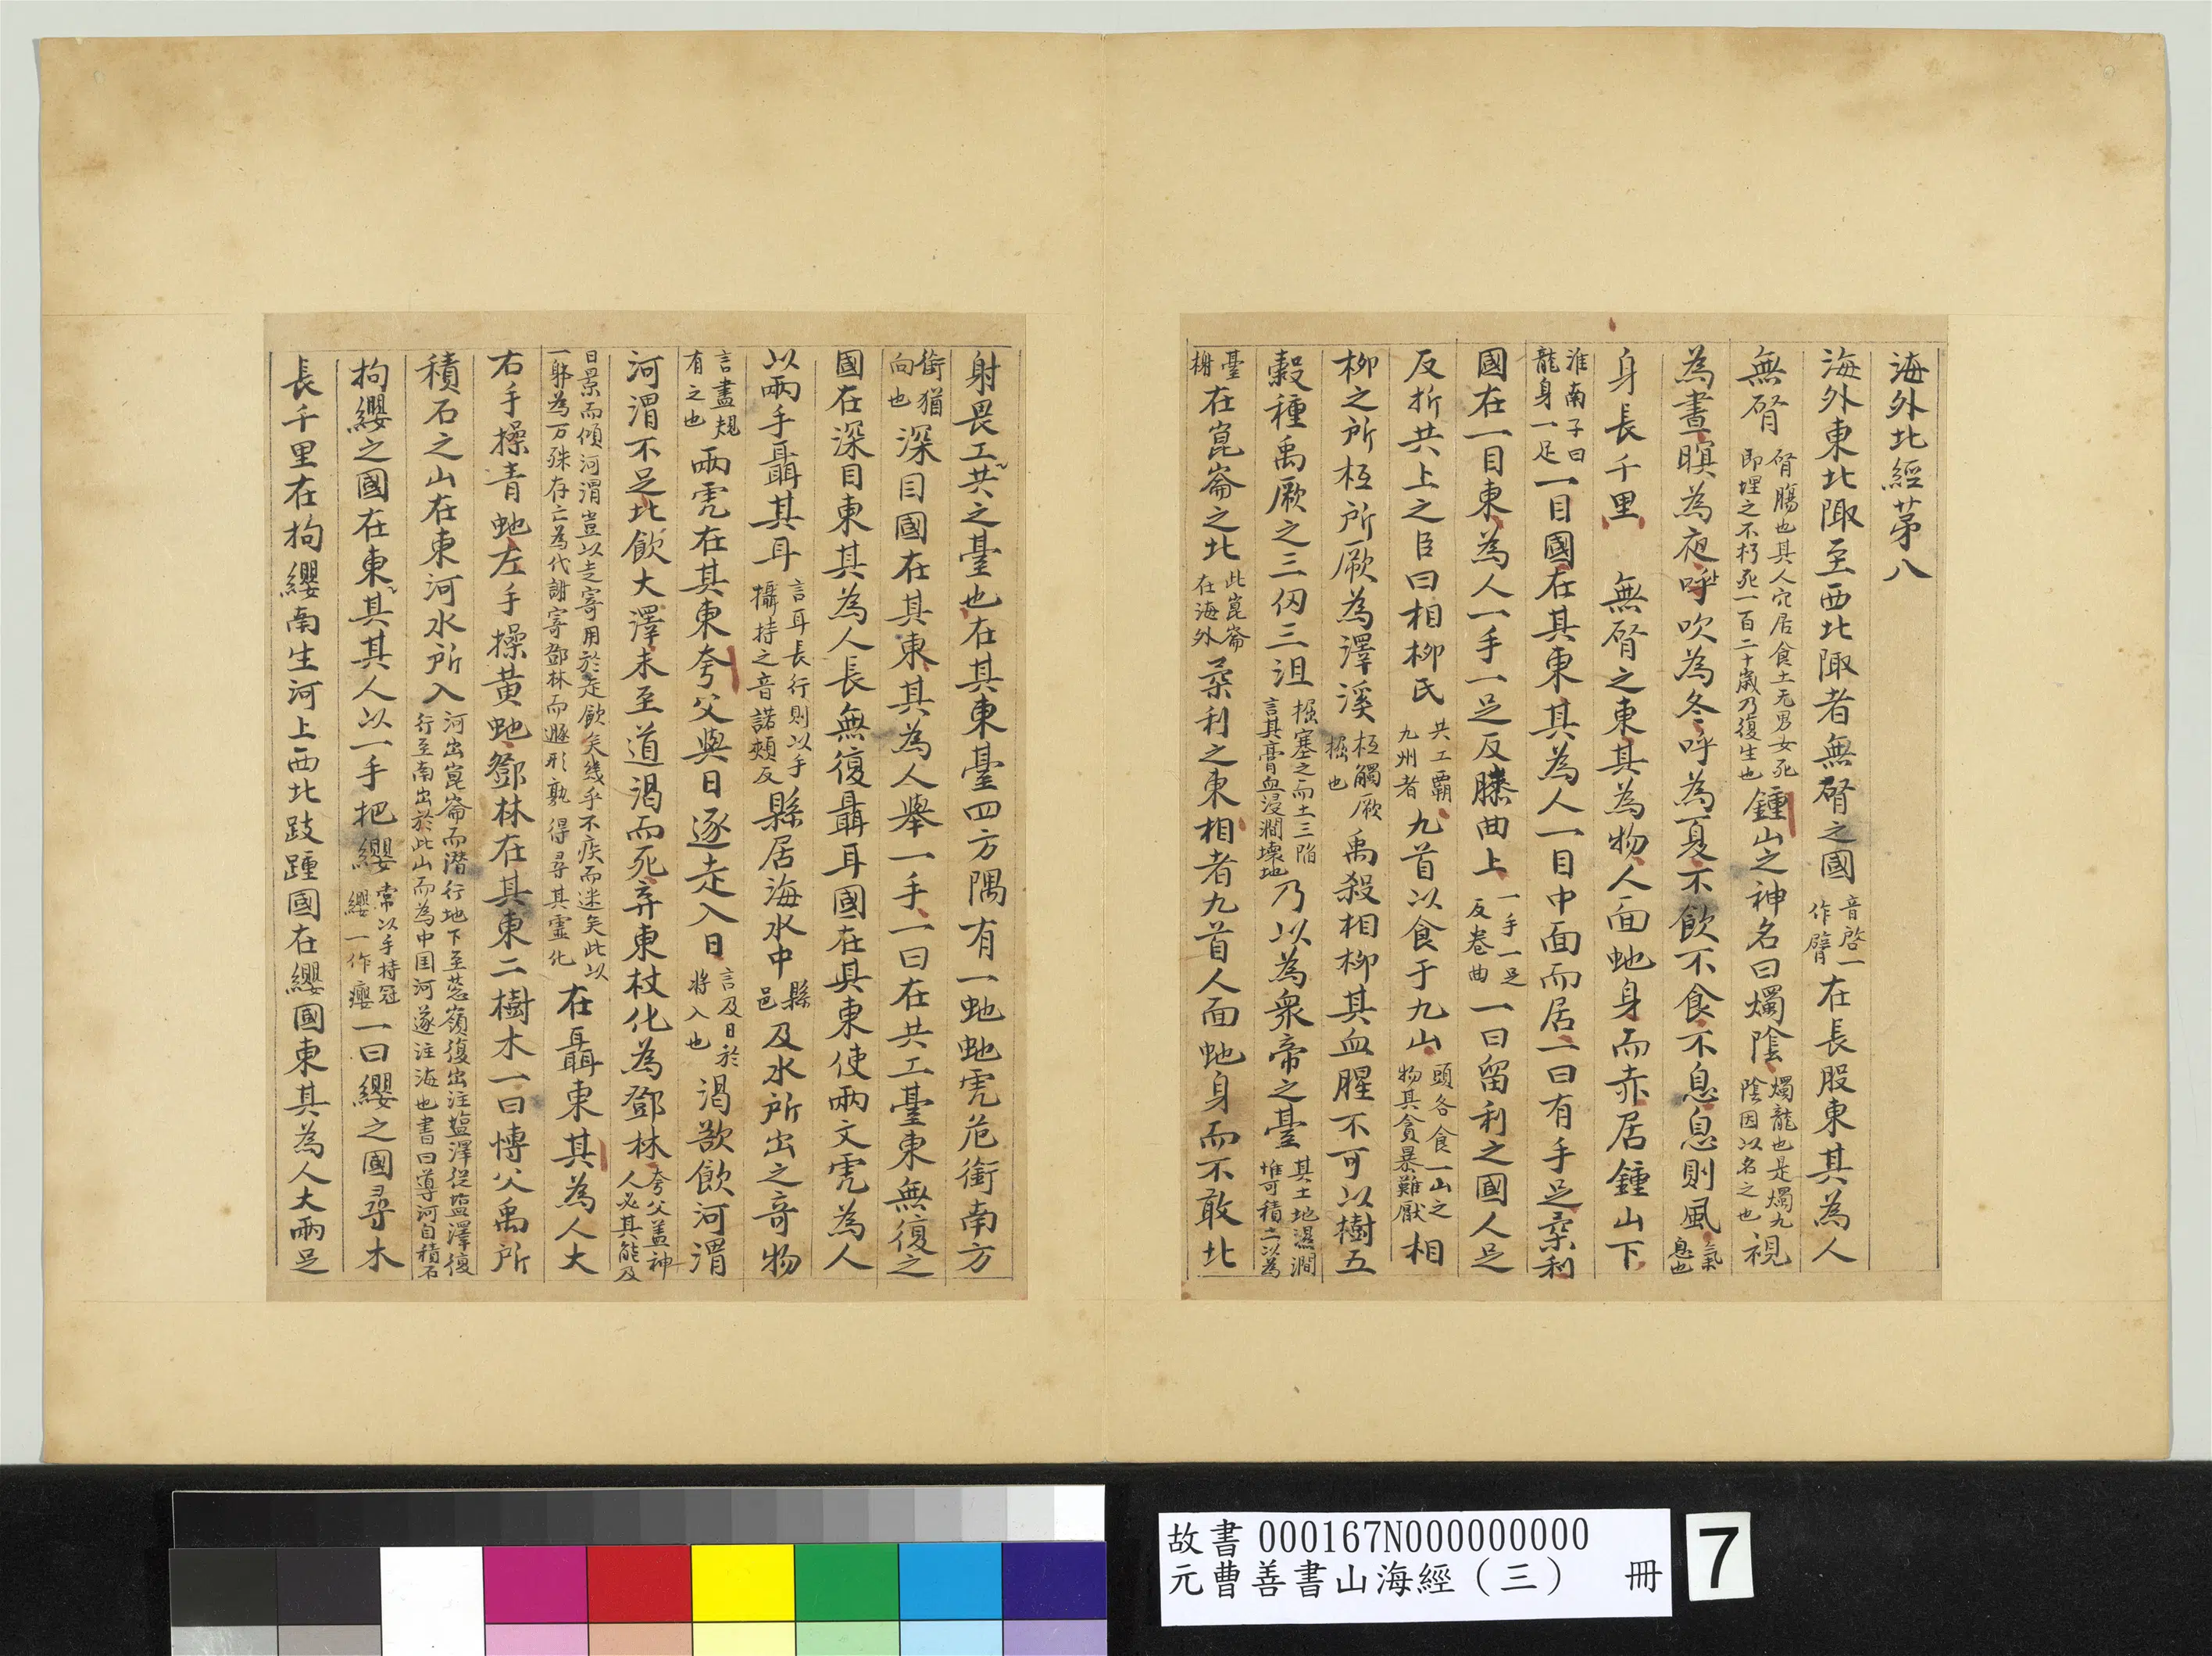 海外北經苐八
海外東北陬至西北陬者無䏿之國音啓一作䏿在長股東其為人
無䏿䏿腸也其人穴居食土无男女死即埋之不朽死一百二十歲乃復生也鍾山之神名曰燭陰燭龍也是燭九陰因以名之也視
為晝瞑為夜吹為冬呼為夏不飲不食不息息則風氣息也
身長千里 無䏿之東其為物人面虵身而赤居鍾山下
淮南子曰龍身一足一目國在其東其為人一目中面而居一曰有手足柔利
國在一目東為人一手一足反膝曲上一手一足反卷曲一曰留利之國人足
反折共上之臣曰相柳氏共工霸九州者九首以食于九山頭各食一山之物其貪暴難厭相
柳之所柢所厥為澤溪柢觸厥掘也禹殺相柳其血腥不可以樹五
穀種禹厥之三仞三沮掘塞之而土三陷言其膏血浸澗壞地乃以為衆帝之臺其土地濕澗堆可積土以為
臺榭在崑崙之北此崑崙在海外柔利之東相者九首人面虵身而不敢北
射畏工共之臺也在其東臺四方隅有一虵虵虎色衝南方
衝猶向也深目國在其東其為人舉一手一曰在共工臺東無復之
國在深目東其為人長無復聶耳國在其東使兩文虎為人
以兩手聶其耳言耳長行則以手攝持之音諾頰反縣居海水中縣邑及水所出之奇物
言盡規有之也兩虎在其東夸父與日逐走入日言及日於將入也渴欲飲河渭
河渭不足北飲大澤未至道渴而死弃東杖化為鄧林夸父盖神人必其能及
日景而傾河渭豈以走寄用於走飲矣幾乎不疾而迷矣此以一躰為万殊存亡為代謝寄鄧林而遯形孰得尋其靈化在聶東其為人大
右手操青虵左手操黃虵鄧林在其東二樹木一曰博父禹所
積石之山在東河水所入河出崑崙而潛行地下至葱嶺復出注塩澤從塩澤復行至南出於此山而為中国河遂注海也書曰導河自積石
拘纓之國在東其其人以一手把纓常以手持冠纓一作癭一曰纓之國尋木
長千里在拘纓南生河上西北跂踵國在纓國東其為人大兩足
故書 000167N000000000
元曹善書山海經（三） 冊
7